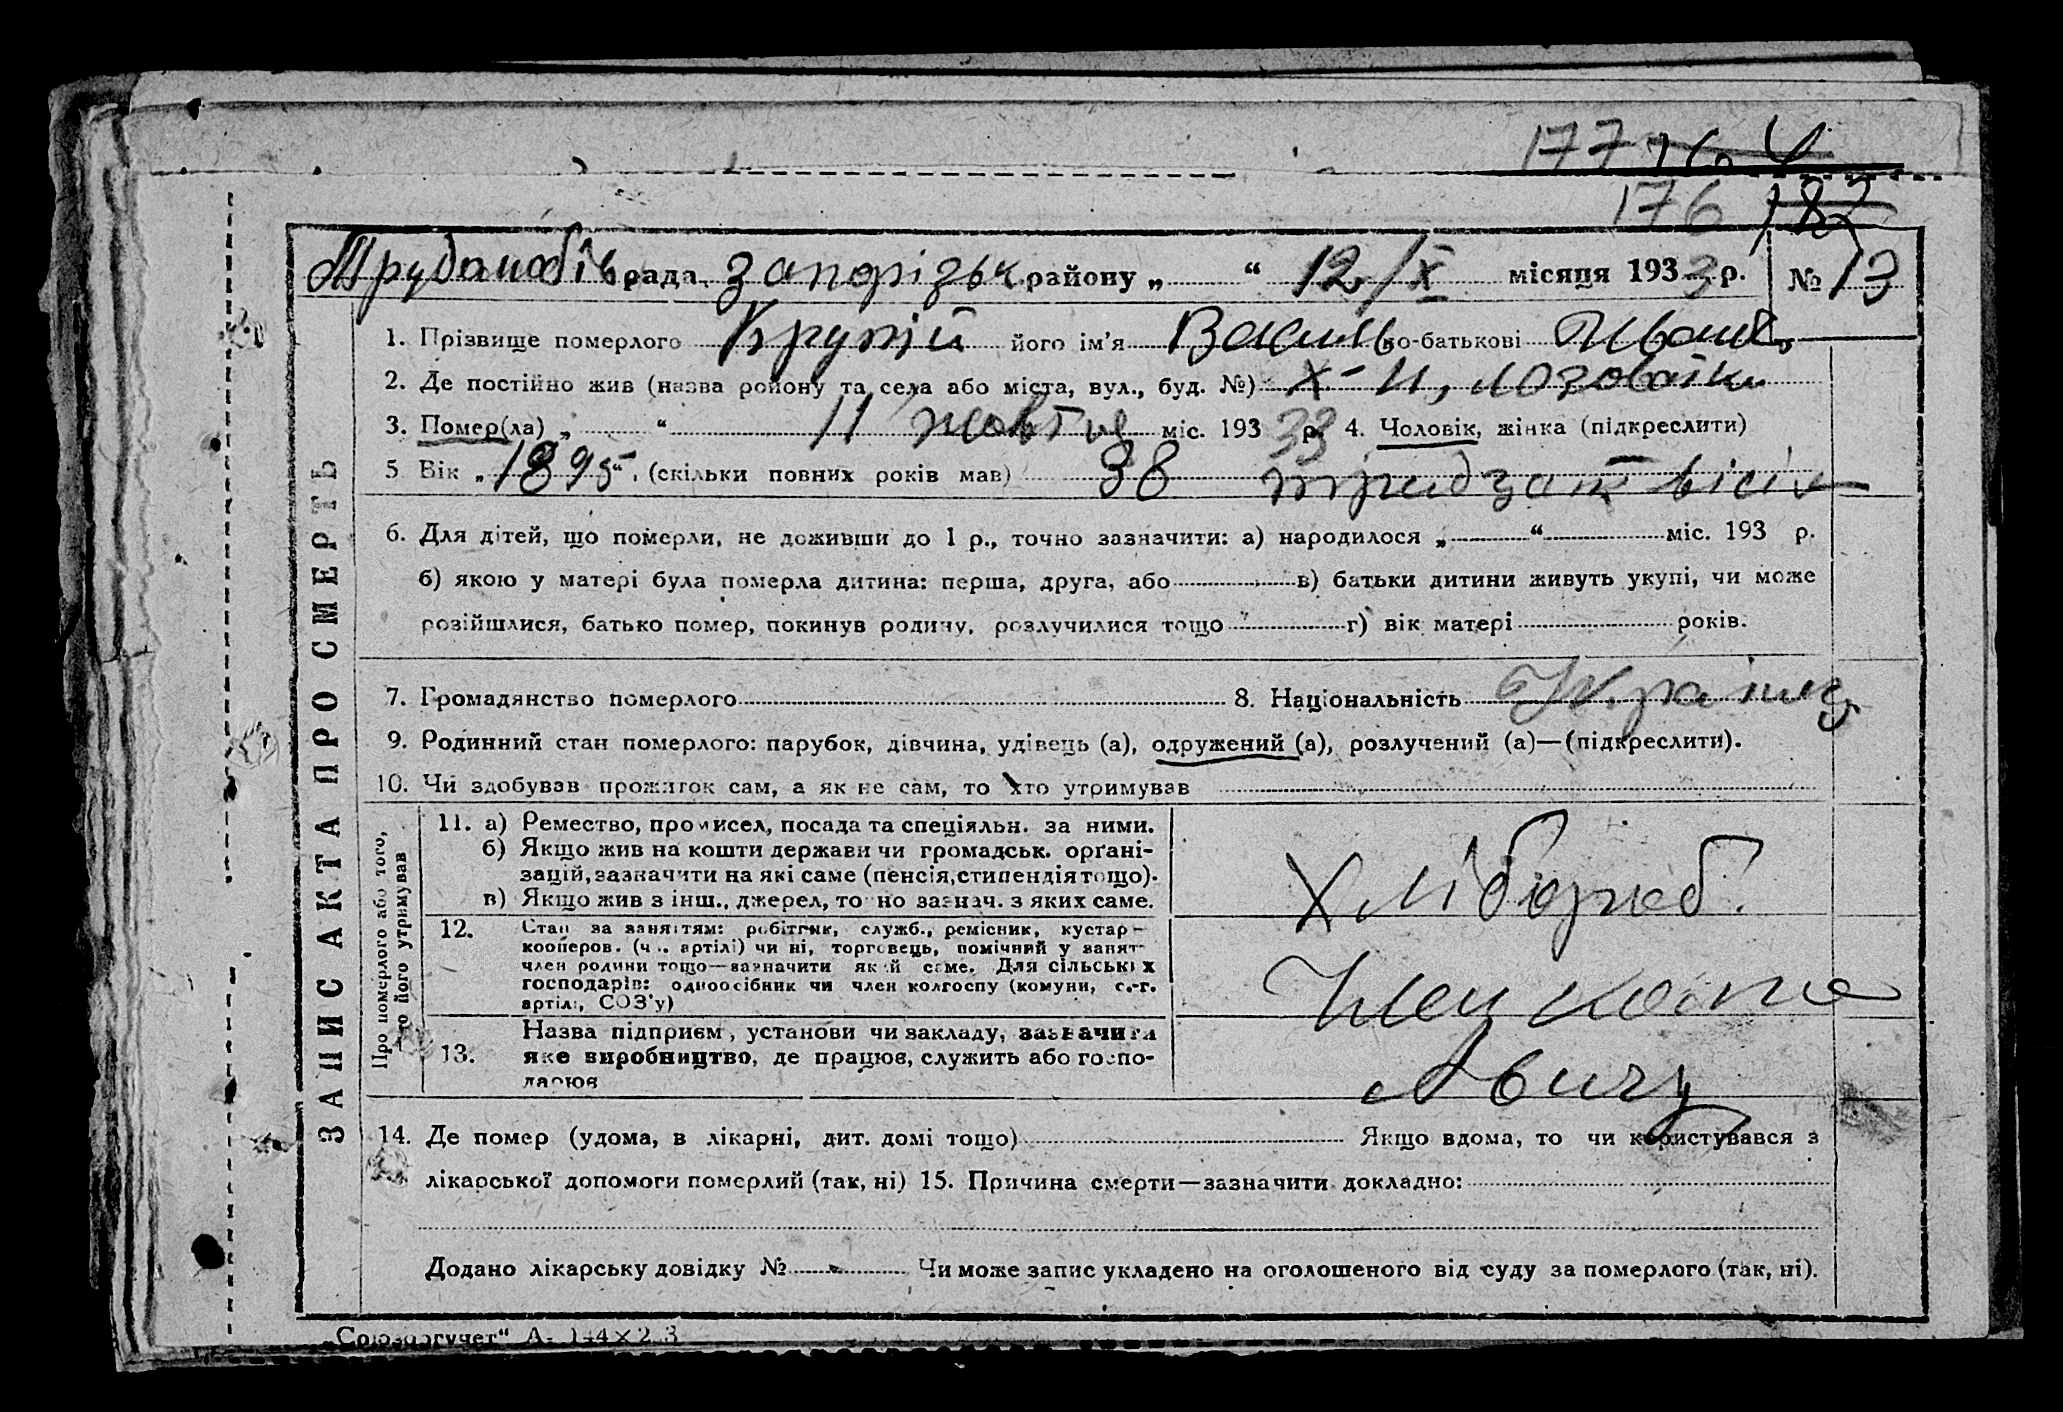 177
176 182
рада Запорізьк району „ “ 12/X місяця 1933 р. № 13
1. Прізвище померлого Крупій його ім'я Василь по-батькові Іванов.
2. Де постійно жив (назва району та села або міста, вул., буд. №) х-н, Лозоватка
3. Помер(ла) „ “ 11 жовтня міс. 193 33 р. 4. Чоловік, жінка (підкреслити)
5 Вік „1895“, (скільки повних років мав) 38 тридцат вісім
6. Для дітей, що померли, не доживши до 1 р., точно зазначити: а) народилося „ “ міс. 193 р.
б) якою у матері була померла дитина: перша, друга, або в) батьки дитини живуть укупі, чи може
розійшлися, батько помер, покинув родину, розлучилися тощо г) вік матері років.
7. Громадянство померлого 8. Національність Україне
9. Родинний стан померлого: парубок, дівчина, удівець (а), одружений (а), розлучений (а)—(підкреслити).
10. Чи здобував прожиток сам, а як не сам, то хто утримував
ЗАПИС АКТА ПРО СМЕРТЬ
Про померлого або того,
хто його утримував
11. а) Ремество, промисел, посада та спеціяльн. за ними.
б) Якщо жив на кошти держави чи громадськ. орґані-
зацій, зазначити на які саме (пенсія, стипендія тощо).
в) Якщо жив з інш., джерел, точно зазнач. з яких саме.
Хлібороб.
12. Стан за заняттям: робітник, служб., ремісник, кустар-
кооперов. (чл. артілі) чи ні, торговець, помічний у занят
член родини тощо—зазначити який саме. Для сільських
господарів: одноосібник чи член колгоспу (комуни, с.-г.
артілі, СОЗ'у)
Член
13. Назва підприєм, установи чи закладу, зазначити
яке виробництво, де працює, служить або госпо-
дарює
14. Де помер (удома, в лікарні, дит. домі тощо) Якщо вдома, то чи користувався з
лікарської допомоги померлий (так, ні) 15. Причина смерти—зазначити докладно:
Додано лікарську довідку № Чи може запис укладено на оголошеного від суду за померлого (так, ні).